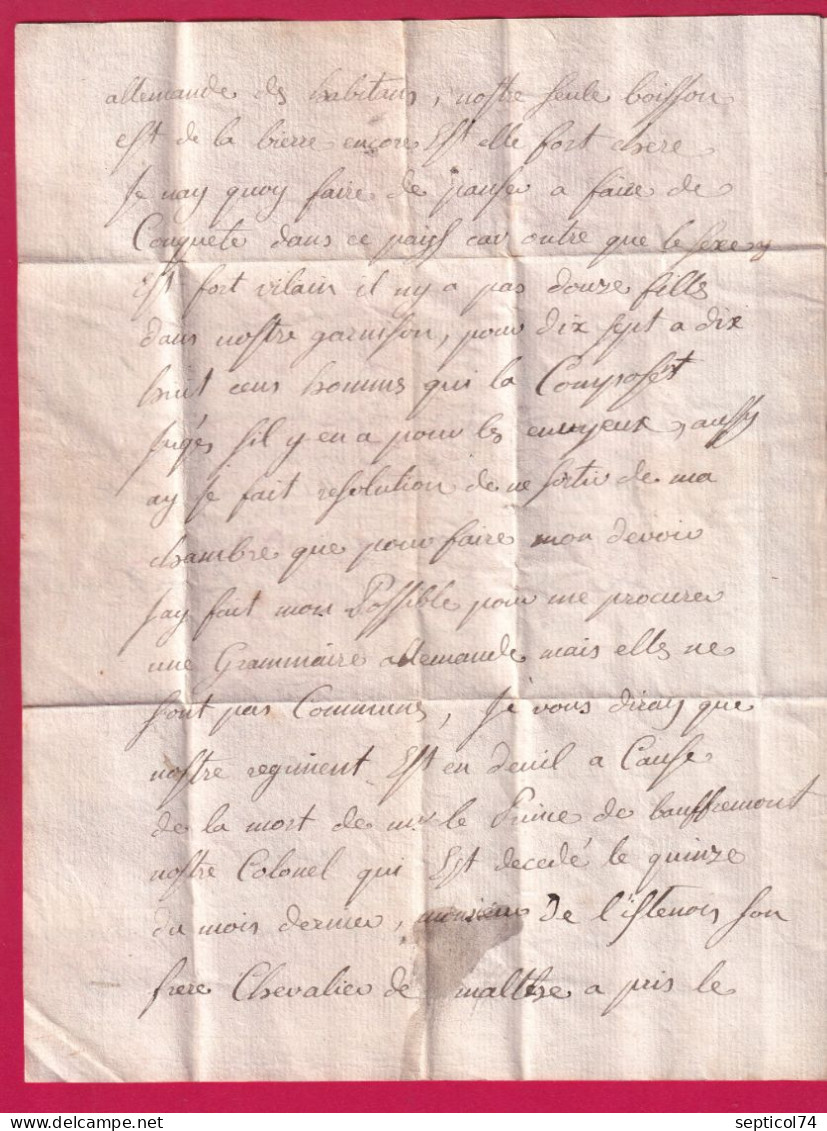 allemande des habitans, nostre seule boisson
est de la bierre encore Est elle fort chere
Je nay quoy faire de panser a faire de
Conquete dans ce paiss car outre que le sexe y
Est fort vilain il ny a pas douze filles
dans nostre garnison, pour dix sept a dix
huit cens hommes qui la Composent
jugés sil y en a pour les envyeux, aussy
ay je fait resolution de ne sortir de ma
chambre que pour faire mon devoir
jay fait mon Possible pour me procurer
une Grammaire allemande mais elles ne
sont pas Communes, Je vous diray que
nostre regiment Est en deuil a Cause
de la mort de mr le Prince de bauffremont
nostre Colonel qui Est decedé le quinze
du mois dernier, monsieur De l'istenois son
frere Chevalier de malthe a pris le
septicol74